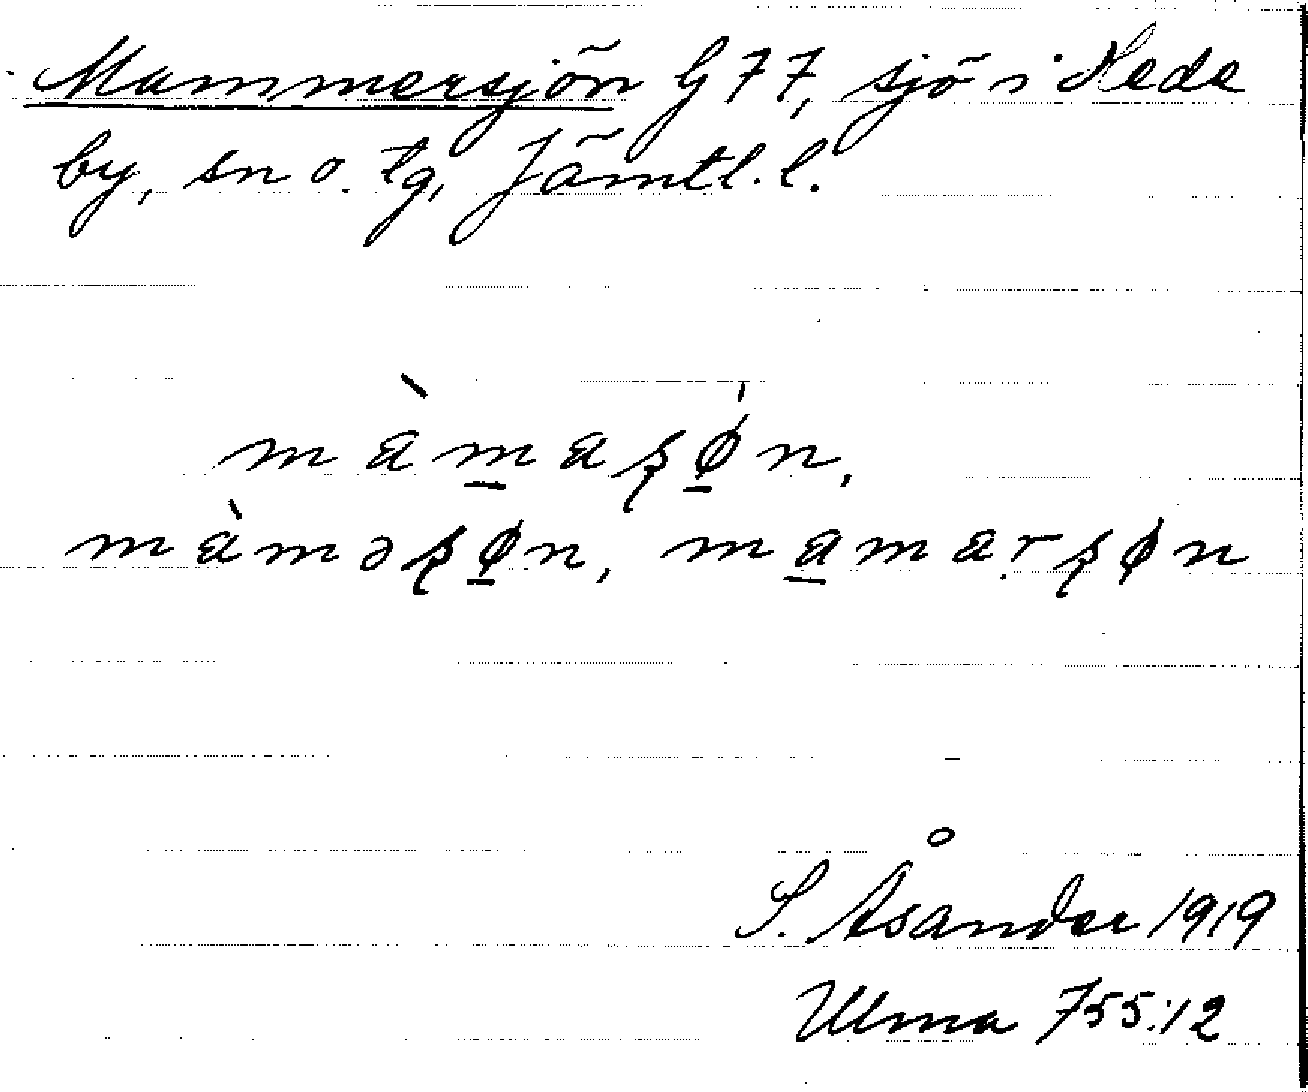 Mammersjön G 77, sjö i Hede
by, sn o. tg, Jämtl. l.
màm̲aʂǿ̲n,
màməʂø̲n, ma̲marʂøn
S. Åsander 1919
Ulma 755:12